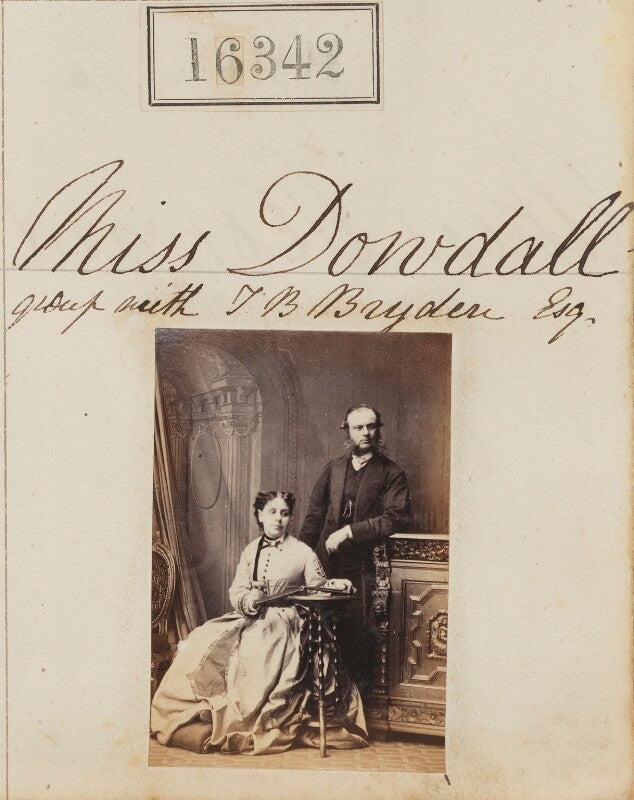 16342
Miss Dowdall
group with T B Bryden Esq.